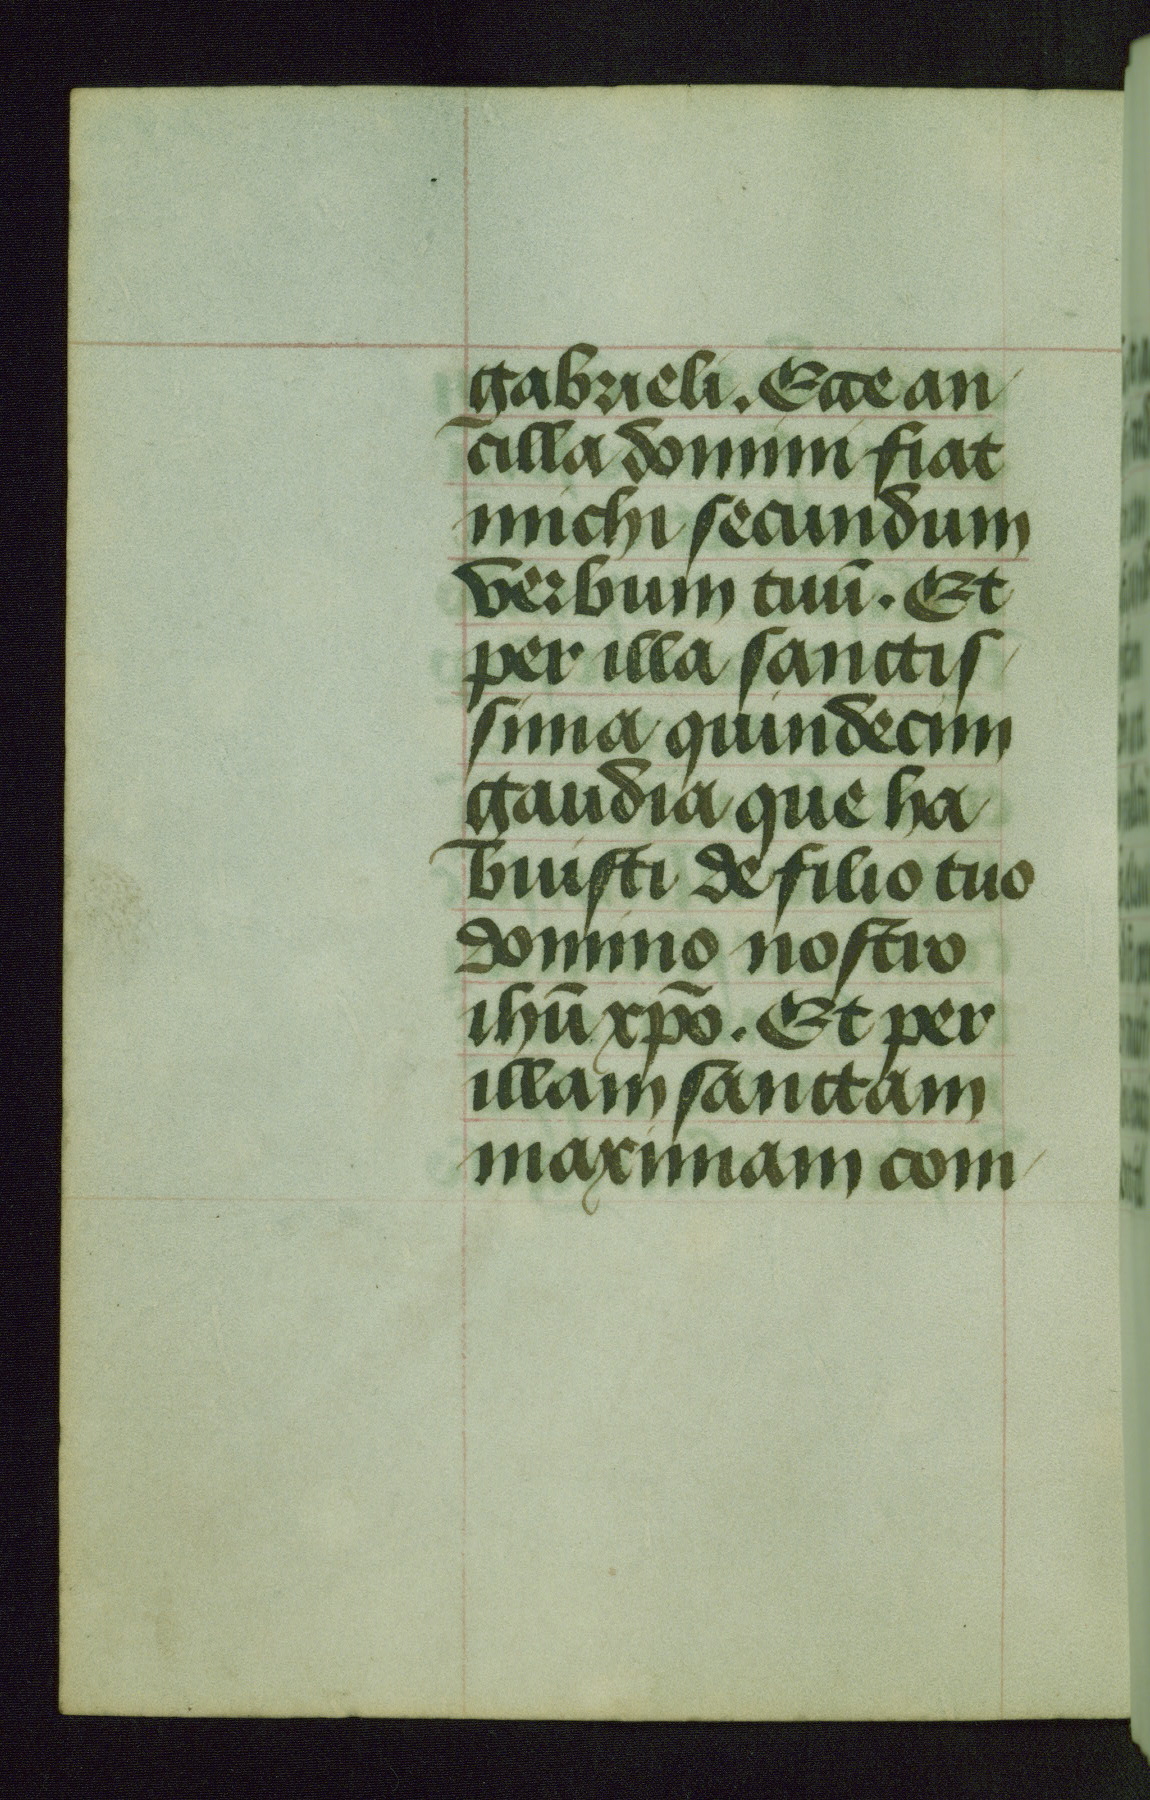 gabrieli. Ecce an
cilla domini fiat
michi secundum
verbum tuū. Et
per illa sanctis
sima quindecim
gaudia que ha
buisti de filio tuo
domino nostro
ihū xp̄o. Et per
illam sanctam
maximam com